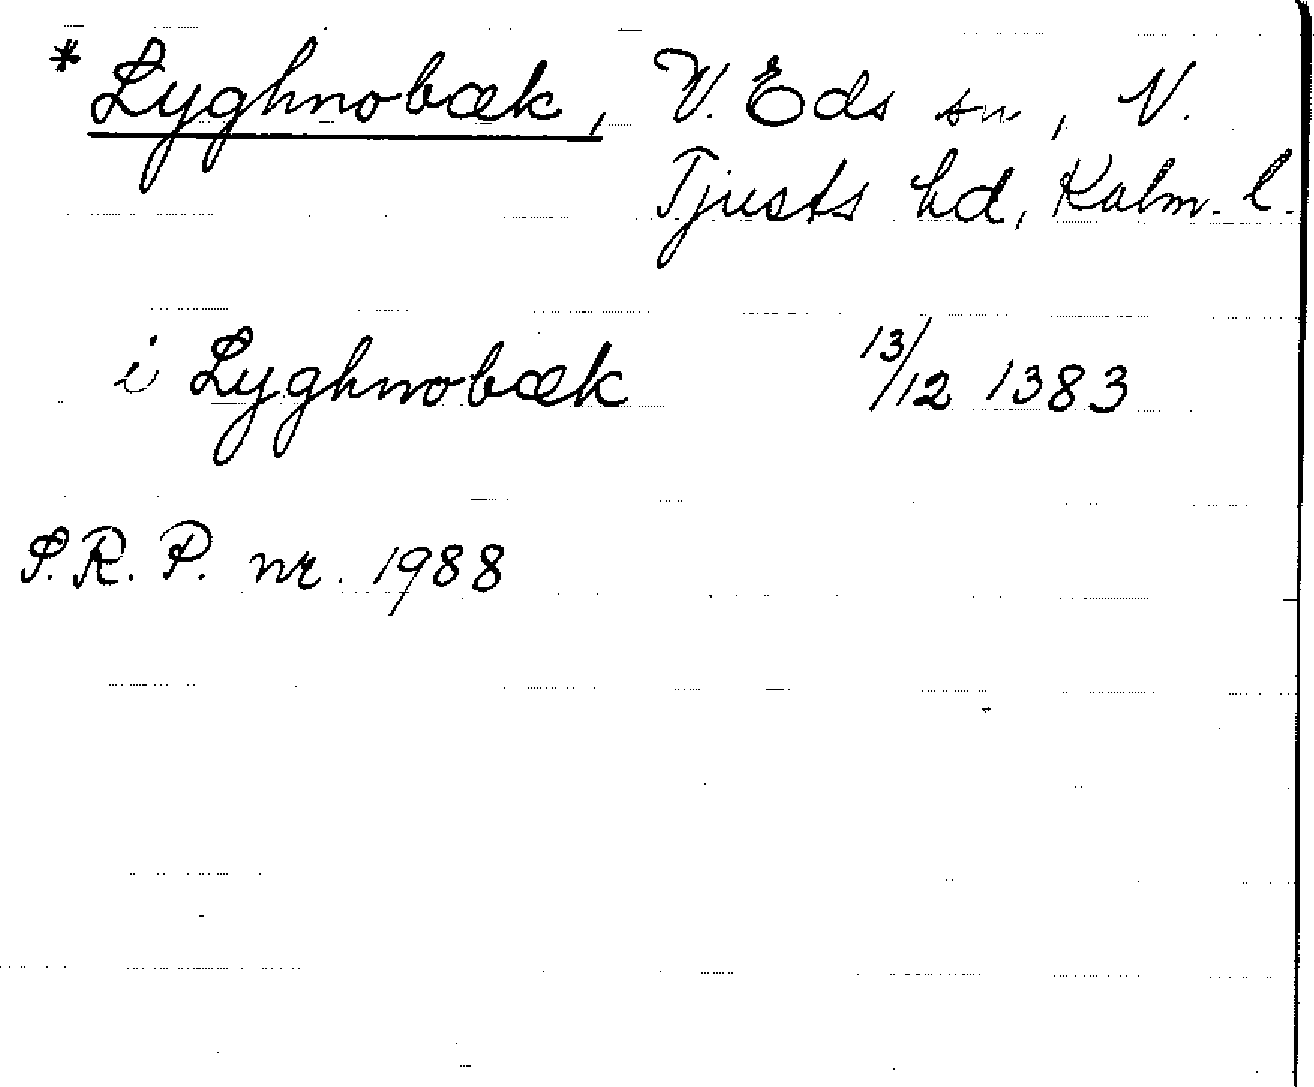 * Lyghnobæk, V. Eds sn, N.
Tjusts hd, Kalm. l.
i Lyghnobæk 13/12 1383
S.R.P. nr. 1988